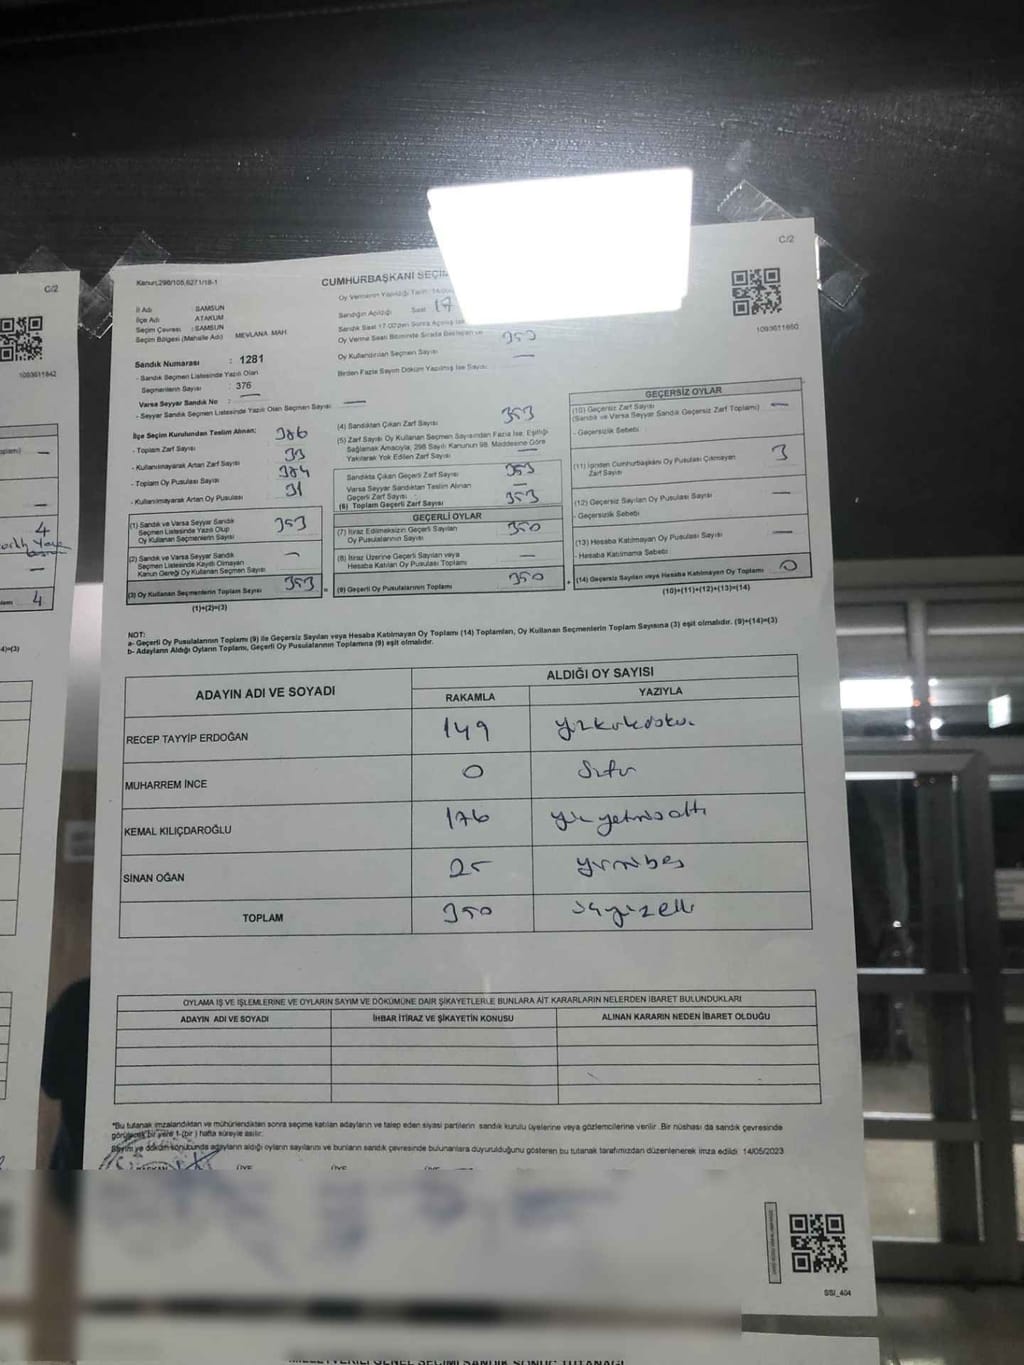 C/2
C/2
Kanun;298/105,6271/18-1
CUMHURBAŞKANI SEÇİM
Oy Vermenin Yapıldığı Tarih
1093611642
1093611650
İl Adı : SAMSUN
İlçe Adı : ATAKUM
Seçim Çevresi : SAMSUN
Seçim Bölgesi (Mahalle Adı) MEVLANA MAH.
Sandığın Açıldığı Saat 17
Sandık Saat 17:00'den Sonra Açılmış İse
Oy Verme Saati Bitiminde Sırada Bekleyen ve
Oy Kullandırılan Seçmen Sayısı
353
Birden Fazla Sayım Döküm Yapılmış İse Sayısı —
Sandık Numarası : 1281
- Sandık Seçmen Listesinde Yazılı Olan
Seçmenlerin Sayısı : 376
Varsa Seyyar Sandık No : —
- Seyyar Sandık Seçmen Listesinde Yazılı Olan Seçmen Sayısı : —
İlçe Seçim Kurulundan Teslim Alınan;
- Toplam Zarf Sayısı : 386
- Kullanılmayarak Artan Zarf Sayısı : 33
- Toplam Oy Pusulası Sayısı : 384
- Kullanılmayarak Artan Oy Pusulası : 31
(1) Sandık ve Varsa Seyyar Sandık
Seçmen Listesinde Yazılı Olup
Oy Kullanan Seçmenlerin Sayısı : 353
(2) Sandık ve Varsa Seyyar Sandık
Seçmen Listesinde Kaydı Olmayan
Kanun Gereği Oy Kullanan Seçmen Sayısı : —
(3) Oy Kullanan Seçmenlerin Toplam Sayısı 353
(1)+(2)=(3)
(4) Sandıktan Çıkan Zarf Sayısı 353
(5) Zarf Sayısı Oy Kullanan Seçmen Sayısından Fazla İse, Eşitliği
Sağlamak Amacıyla, 298 Sayılı Kanunun 98. Maddesine Göre
Yakılarak Yok Edilen Zarf Sayısı —
Sandıkta Çıkan Geçerli Zarf Sayısı : 353
Varsa Seyyar Sandıktan Teslim Alınan
Geçerli Zarf Sayısı : —
(6) Toplam Geçerli Zarf Sayısı 353
GEÇERLİ OYLAR
(7) İtiraz Edilmeksizin Geçerli Sayılan
Oy Pusulasının Sayısı 350
(8) İtiraz Üzerine Geçerli Sayılan veya
Hesaba Katılan Oy Pusulası Toplamı —
(9) Geçerli Oy Pusulalarının Toplamı 350
GEÇERSİZ OYLAR
(10) Geçersiz Zarf Sayısı
(Sandık ve Varsa Seyyar Sandık Geçersiz Zarf Toplamı) —
- Geçersizlik Sebebi :
(11) İçinden Cumhurbaşkanı Oy Pusulası Çıkmayan
Zarf Sayısı 3
(12) Geçersiz Sayılan Oy Pusulası Sayısı —
- Geçersizlik Sebebi
(13) Hesaba Katılmayan Oy Pusulası Sayısı —
- Hesaba Katılmama Sebebi
(14) Geçersiz Sayılan veya Hesaba Katılmayan Oy Toplamı 0
(10)+(11)+(12)+(13)=(14)
4
4
4)=(3)
NOT:
a- Geçerli Oy Pusulalarının Toplamı (9) ile Geçersiz Sayılan veya Hesaba Katılmayan Oy Toplamı (14) Toplamları, Oy Kullanan Seçmenlerin Toplam Sayısına (3) eşit olmalıdır. (9)+(14)=(3)
b- Adayların Aldığı Oyların Toplamı, Geçerli Oy Pusulalarının Toplamına (9) eşit olmalıdır.
ADAYIN ADI VE SOYADI
ALDIĞI OY SAYISI
RAKAMLA YAZIYLA
RECEP TAYYİP ERDOĞAN 149 yüzkırkdokuz
MUHARREM İNCE 0 Sıfır
KEMAL KILIÇDAROĞLU 176 yüzyetmişaltı
SİNAN OĞAN 25 yirmibeş
TOPLAM 350 üçyüzelli
OYLAMA İŞ VE İŞLEMLERİNE VE OYLARIN SAYIM VE DÖKÜMÜNE DAİR ŞİKAYETLERLE BUNLARA AİT KARARLARIN NELERDEN İBARET BULUNDUKLARI
ADAYIN ADI VE SOYADI İHBAR İTİRAZ VE ŞİKAYETİN KONUSU ALINAN KARARIN NEDEN İBARET OLDUĞU
*Bu tutanak imzalandıktan ve mühürlendikten sonra seçime katılan adayların ve talep eden siyasi partilerin sandık kurulu üyelerine veya gözlemcilerine verilir. Bir nüshası da sandık çevresinde
görülecek bir yere 1 (bir) hafta süreyle asılır.
Sayım ve döküm konusunda adayların aldığı oyların sayılarını ve bunların sandık çevresinde bulunanlara duyurulduğunu gösteren bu tutanak tarafımızdan düzenlenerek imza edildi. 14/05/2023
BAŞKAN ÜYE ÜYE ÜYE
SSİ_404
MİLLETVEKİLİ GENEL SEÇİMİ SANDIK SONUÇ TUTANAĞI